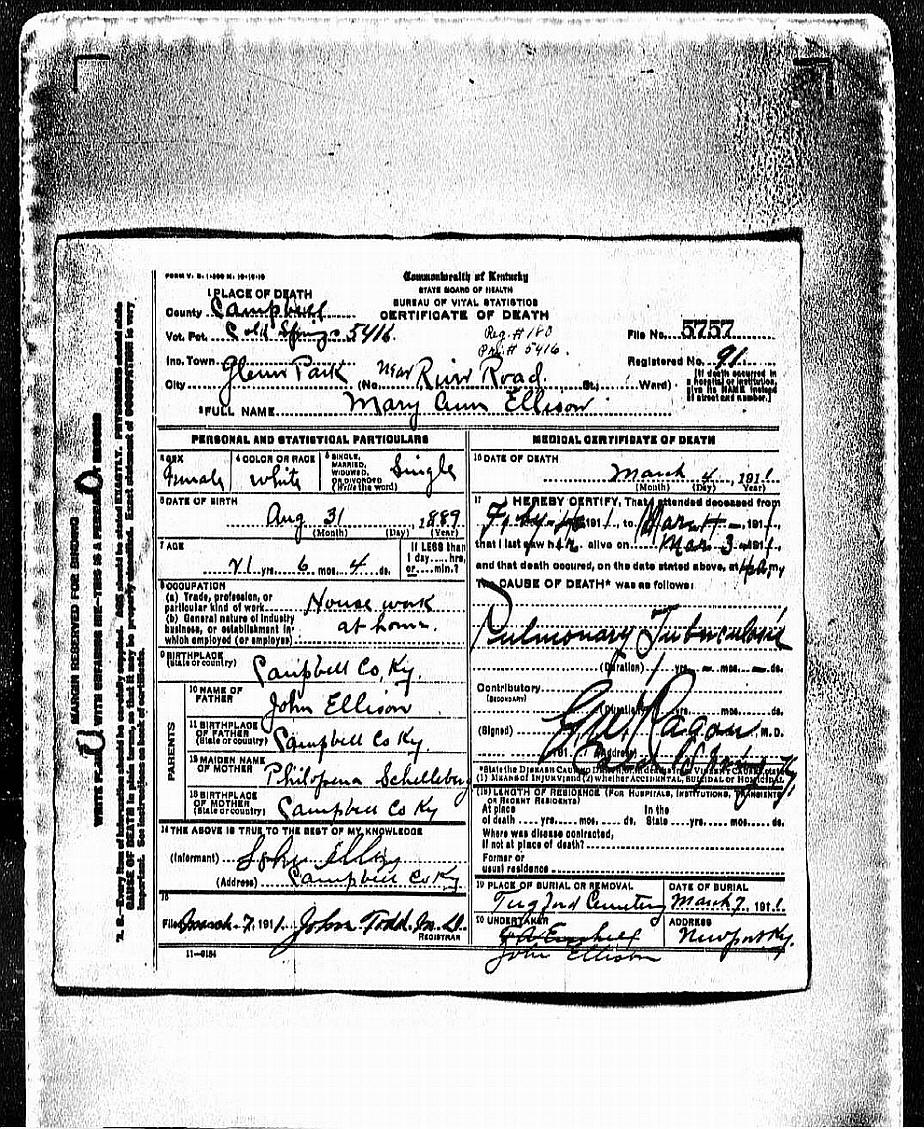 FORM V. S. 1-
Commonwealth of Kentucky
STATE BOARD OF HEALTH
BUREAU OF VITAL STATISTICS
CERTIFICATE OF DEATH
1 PLACE OF DEATH
County Campbell
Vot. Pct. Cold Springs 5416.
Reg. # 180
Pri. # 5416.
File No. 5757
Inc. Town
Registered No. 91
City Glenn Park (No. near River Road St.; Ward)
[If death occurred in a hospital or institution, give its NAME instead of street and number.]
2 FULL NAME Mary Ann Ellison
PERSONAL AND STATISTICAL PARTICULARS
3 SEX Female
4 COLOR OR RACE White
5 SINGLE, MARRIED, WIDOWED, OR DIVORCED (Write the word) Single
6 DATE OF BIRTH
Aug 31 1889
(Month) (Day) (Year)
7 AGE
21 yrs. 6 mos. 4 ds.
If LESS than 1 day.... hrs. or.... min.?
8 OCCUPATION
(a) Trade, profession, or particular kind of work House work
(b) General nature of industry business, or establishment in which employed (or employer) at home.
9 BIRTHPLACE (State or country) Campbell Co, Ky.
PARENTS
10 NAME OF FATHER John Ellison
11 BIRTHPLACE OF FATHER (State or country) Campbell Co Ky.
12 MAIDEN NAME OF MOTHER Philopena
13 BIRTHPLACE OF MOTHER (State or country) Campbell Co Ky
14 THE ABOVE IS TRUE TO THE BEST OF MY KNOWLEDGE
(Informant) John
(Address) Campbell Co Ky
15
Filed March 7, 1911. John Todd M.D.
REGISTRAR
11-6184
MEDICAL CERTIFICATE OF DEATH
16 DATE OF DEATH
March 4, 1911
(Month) (Day) (Year)
17 I HEREBY CERTIFY, That I attended deceased from
1911, to Mar 4 1911,
that I last saw her alive on Mar. 3 1911,
and that death occurred, on the date stated above, at
The CAUSE OF DEATH* was as follows:
Pulmonary Tuberculosis
(Duration) 1 yrs. – mos. – ds.
Contributory
(SECONDARY)
(Duration) yrs. mos. ds.
(Signed) Ragan M. D.
191 (Address)
*State the DISEASE CAUSING DEATH, or, in deaths from VIOLENT CAUSES, state
(1) MEANS OF INJURY; and (2) whether ACCIDENTAL, SUICIDAL or HOMICIDAL
18 LENGTH OF RESIDENCE (FOR HOSPITALS, INSTITUTIONS, TRANSIENTS OR RECENT RESIDENTS)
At place of death.....yrs.....mos.....ds. In the State.....yrs.....mos.....ds.
Where was disease contracted, if not at place of death?
Former or usual residence
19 PLACE OF BURIAL OR REMOVAL
Cemetery
DATE OF BURIAL
March 7, 1911
20 UNDERTAKER
John Ellison
ADDRESS
Newport Ky.
MARGIN RESERVED FOR BINDING
WRITE PLAINLY WITH UNFADING INK—THIS IS A PERMANENT RECORD
N. B.—Every item of information should be carefully supplied. AGE should be stated EXACTLY. PHYSICIANS should state
CAUSE OF DEATH in plain terms, so that it may be properly classified. Exact statement of OCCUPATION is very
important. See instructions on back of certificate.